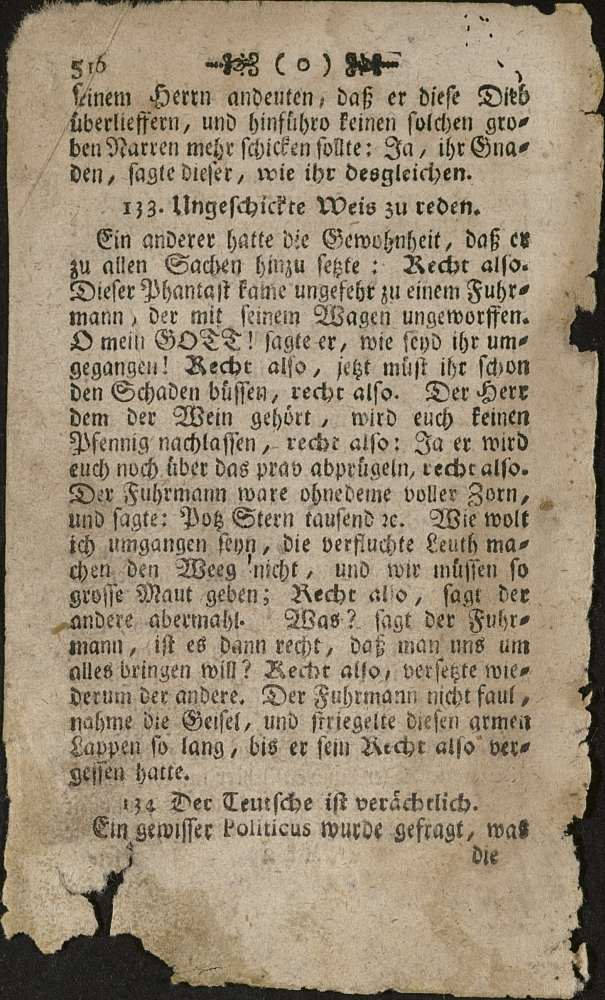 516 ( o )
seinem Herrn andeuten, daß er diese Dieb
überlieffern, und hinführo keinen solchen gro-
ben Narren mehr schicken sollte: Ja, ihr Gna-
den, sagte dieser, wie ihr desgleichen.
133. Ungeschickte Weis zu reden.
Ein anderer hatte die Gewohnheit, daß er
zu allen Sachen hinzu setzte: Recht also.
Dieser Phantast kame ungefehr zu einem Fuhr-
mann, der mit seinem Wagen ungeworffen.
O mein GOTT! sagte er, wie seyd ihr um-
gegangen! Recht also, jetzt müst ihr schon
den Schaden büssen, recht also. Der Herr
dem der Wein gehört, wird euch keinen
Pfennig nachlassen, recht also: Ja er wird
euch noch über das prav abprügeln, recht also.
Der Fuhrmann ware ohnedeme voller Zorn,
und sagte: Potz Stern tausend ꝛc. Wie wolt
ich umgangen seyn, die verfluchte Leuth ma-
chen den Weeg nicht, und wir müssen so
grosse Maut geben; Recht also, sagt der
andere abermahl. Was? sagt der Fuhr-
mann, ist es dann recht, daß man uns um
alles bringen will? Recht also, versetzte wie-
derum der andere. Der Fuhrmann nicht faul,
nahme die Geisel, und striegelte diesen armen
Lappen so lang, bis er sein Recht also ver-
gessen hatte.
134 Der Teutsche ist verächtlich.
Ein gewisser Politicus wurde gefragt, was
die